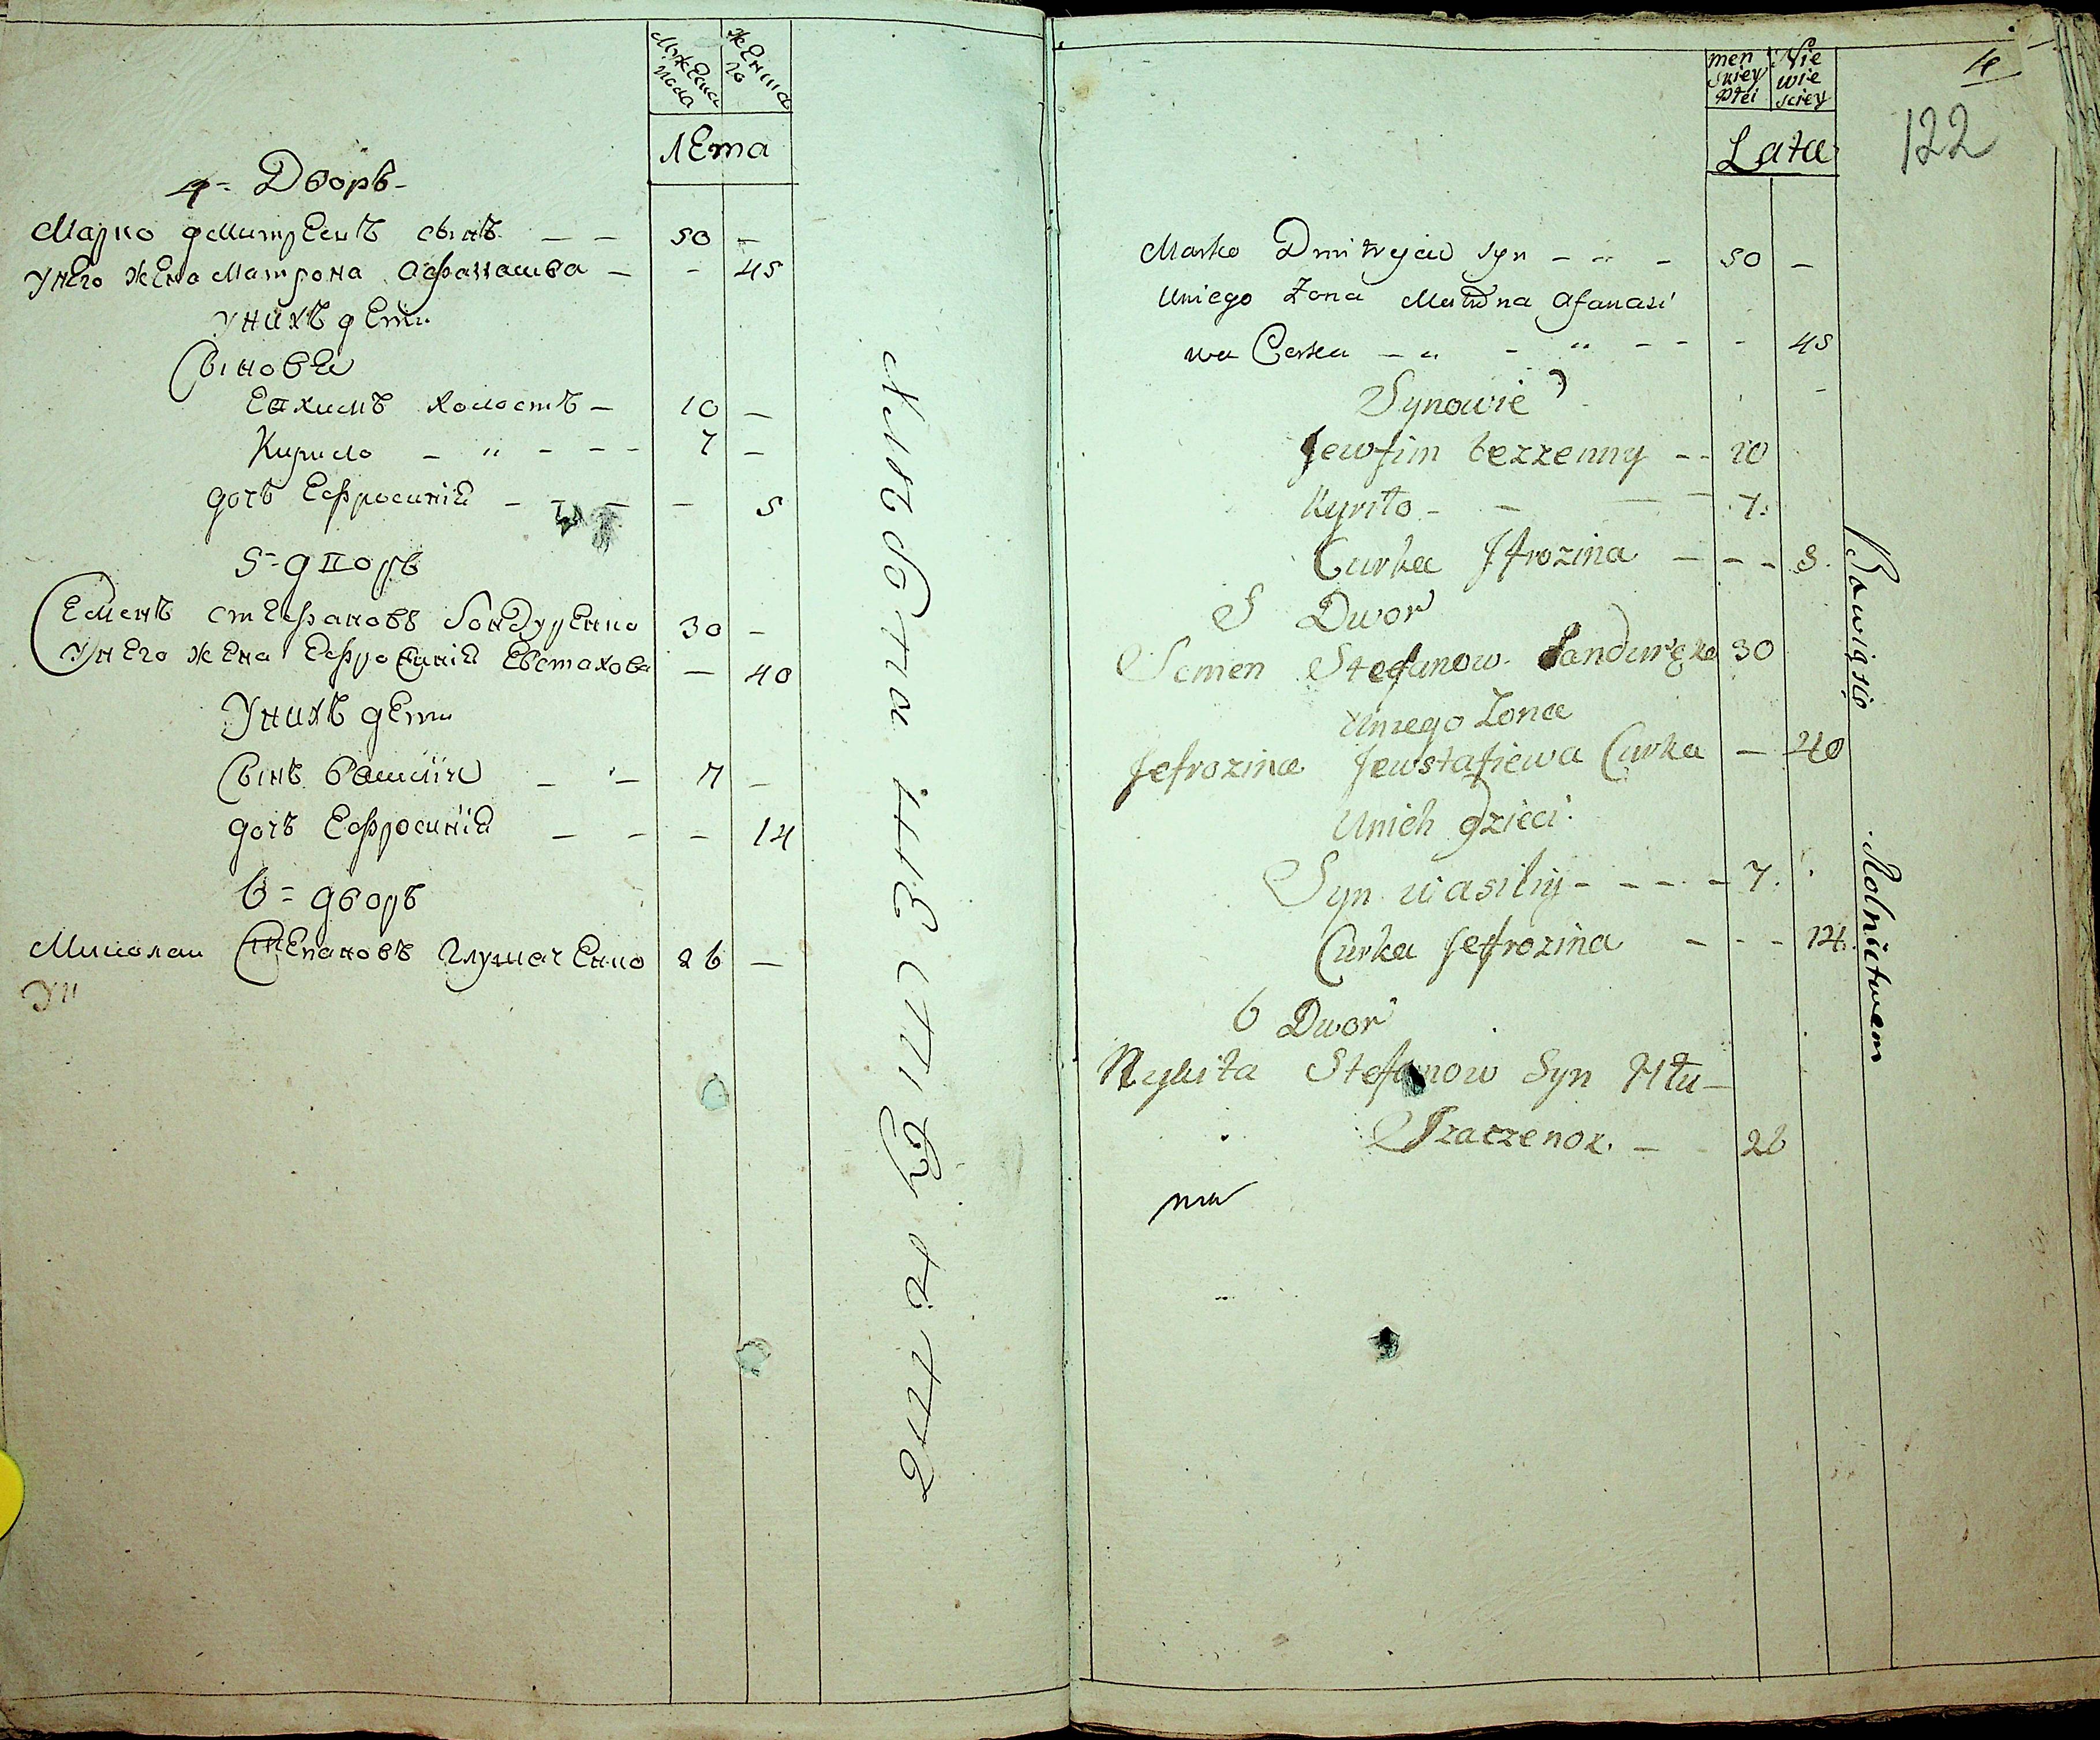 Мужеска
пола
женска
го
лета
4 = Дворъ
Марко дмитреевъ сынъ — — 50 —
у него жена Матрона Афанасиева — - 45
у нихъ дети
Сыновя
Ефимъ холостъ — 10 —
Кирило - " - - - 7 —
дочь Ефросиния - - - - 5
5 = дворъ
Семенъ Стефановъ бондуренко 30 —
у него жена Ефросиния Евстахова — 40
У нихъ дети
Сынъ василии — - 7 —
дочь Ефросиния — - - 14
6 = дворъ
Степановъ глушаченко 26 —
Ун
men
skiey
płci
Nie
wie
sciey
4
122
Lata
Marko Dmitryew syn - " - 50 —
Uniego Żona Matrona Afanasi
wa Corka - " - " - - - 45
Synowie
Jewfim bezzenny - - 10
Kyriło - - — - 7.
Curka Jfrozina — - - 5.
5 Dwor
Semen Stefanow Banduręko 30
Uniego Żona
Jefrozina Jewstafiewa Curka — 40
Unich dzieci.
Syn wasiliy - - - - 7.
Curka Jeffrozina - - - 14.
6 Dwor
Nykita Stefanow Syn Hłu-
Szaczenok. — 26
Bawią się Rolnictwem